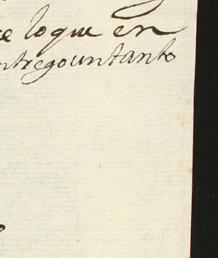 ce loque en
ntregó un tanto